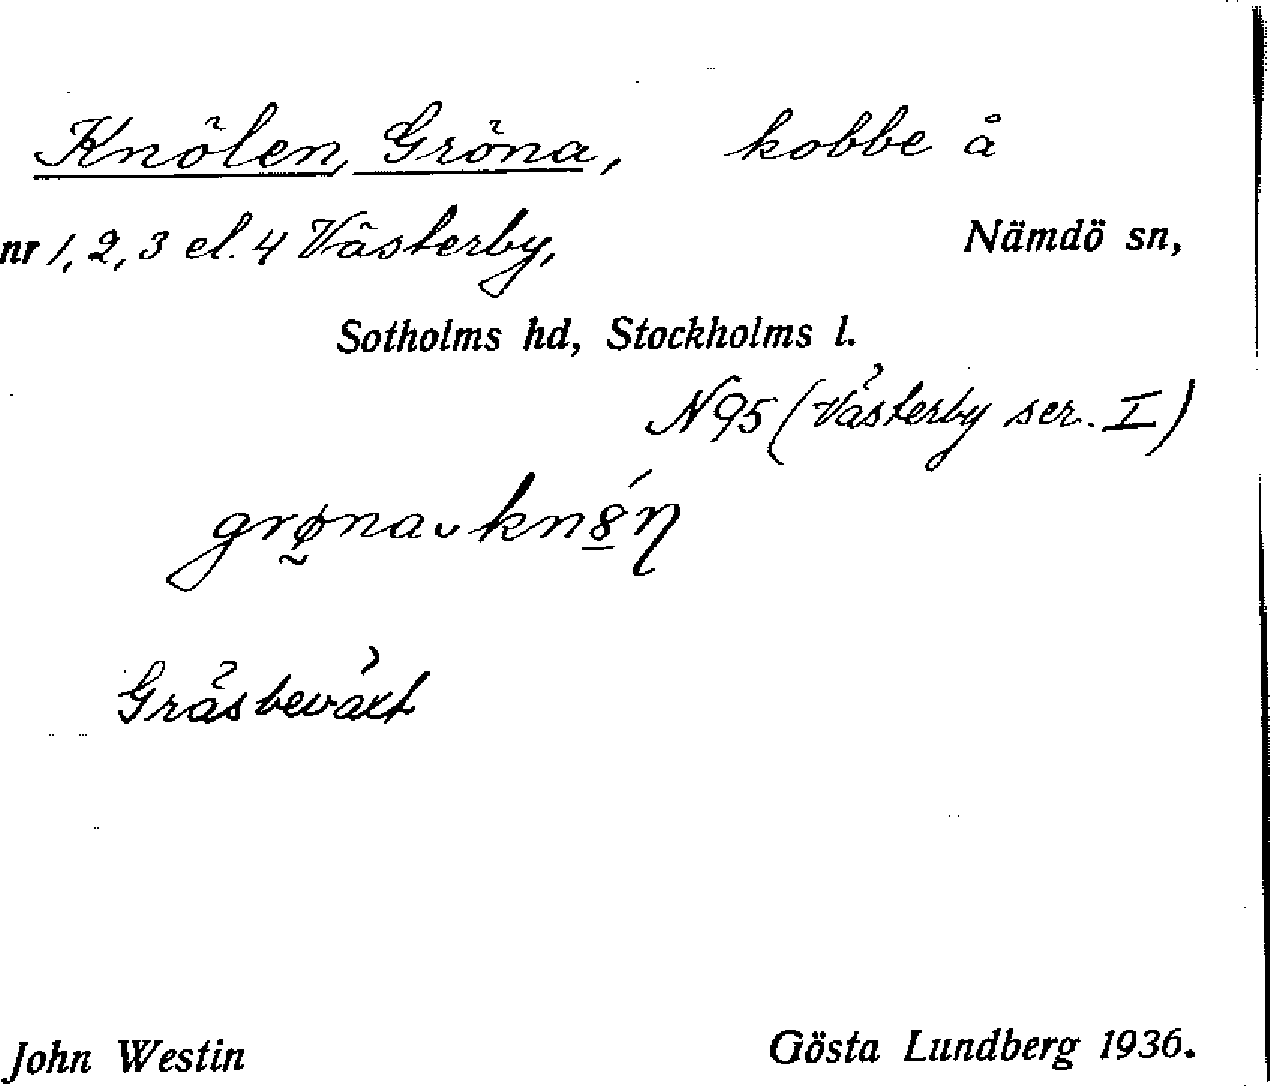 Knölen, Gröna, kobbe å
nr 1, 2, 3 el. 4 Västerby, Nämdö sn,
Sotholms hd, Stockholms l.
N 95 (Västerby ser. I)
Gräsbeväxt
John Westin Gösta Lundberg 1936.